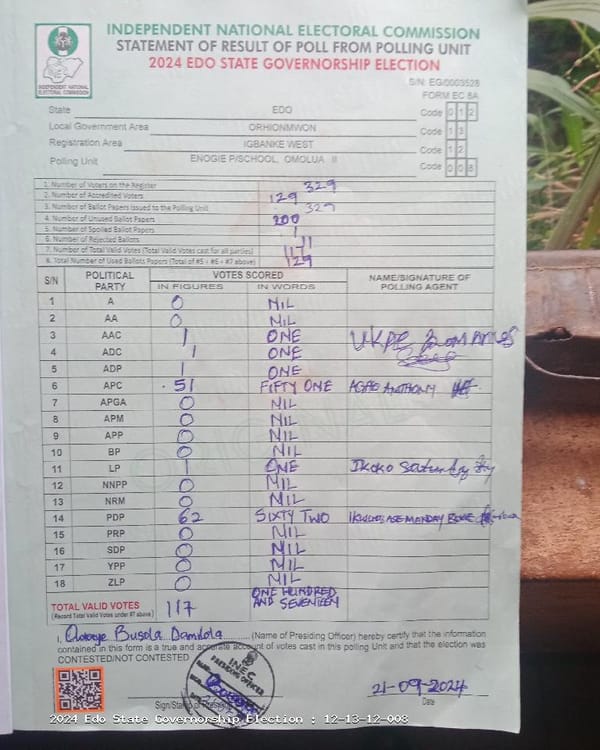 INDEPENDENT NATIONAL ELECTORAL COMMISSION
STATEMENT OF RESULT OF POLL FROM POLLING UNIT
2024 EDO STATE GOVERNORSHIP ELECTION
INDEPENDENT NATIONAL ELECTORAL COMMISSION
S/N: EG/0003528
FORM EC 8A
State EDO Code 0 1 2
Local Government Area ORHIONMWON Code 1 3
Registration Area IGBANKE WEST Code 1 2
Polling Unit ENOGIE P/SCHOOL, OMOLUA II Code 0 0 8
1. Number of Voters on the Register 329
2. Number of Accredited Voters 129
3. Number of Ballot Papers Issued to the Polling Unit 329
4. Number of Unused Ballot Papers 200
5. Number of Spoiled Ballot Papers 1
6. Number of Rejected Ballots 11
7. Number of Total Valid Votes (Total Valid Votes cast for all parties) 117
8. Total Number of Used Ballots Papers (Total of #5 + #6 + #7 above) 129
S/N POLITICAL PARTY VOTES SCORED NAME/SIGNATURE OF POLLING AGENT
IN FIGURES IN WORDS
1 A 0 NIL
2 AA 0 NIL
3 AAC 1 ONE UKPE
4 ADC 1 ONE
5 ADP 1 ONE
6 APC 51 FIFTY ONE ANTHONY
7 APGA 0 NIL
8 APM 0 NIL
9 APP 0 NIL
10 BP 0 NIL
11 LP 1 ONE Saturday
12 NNPP 0 NIL
13 NRM 0 NIL
14 PDP 62 SIXTY TWO MONDAY
15 PRP 0 NIL
16 SDP 0 NIL
17 YPP 0 NIL
18 ZLP 0 NIL
TOTAL VALID VOTES 117 ONE HUNDRED AND SEVENTEEN
(Record Total Valid Votes under #7 above)
I, Busola Damilola (Name of Presiding Officer) hereby certify that the information
contained in this form is a true and accurate account of votes cast in this polling Unit and that the election was
CONTESTED/NOT CONTESTED
INEC
PRESIDING OFFICER
21-09-2024
Sign/Stamp of Date
2024 Edo State Governorship Election : 12-13-12-008